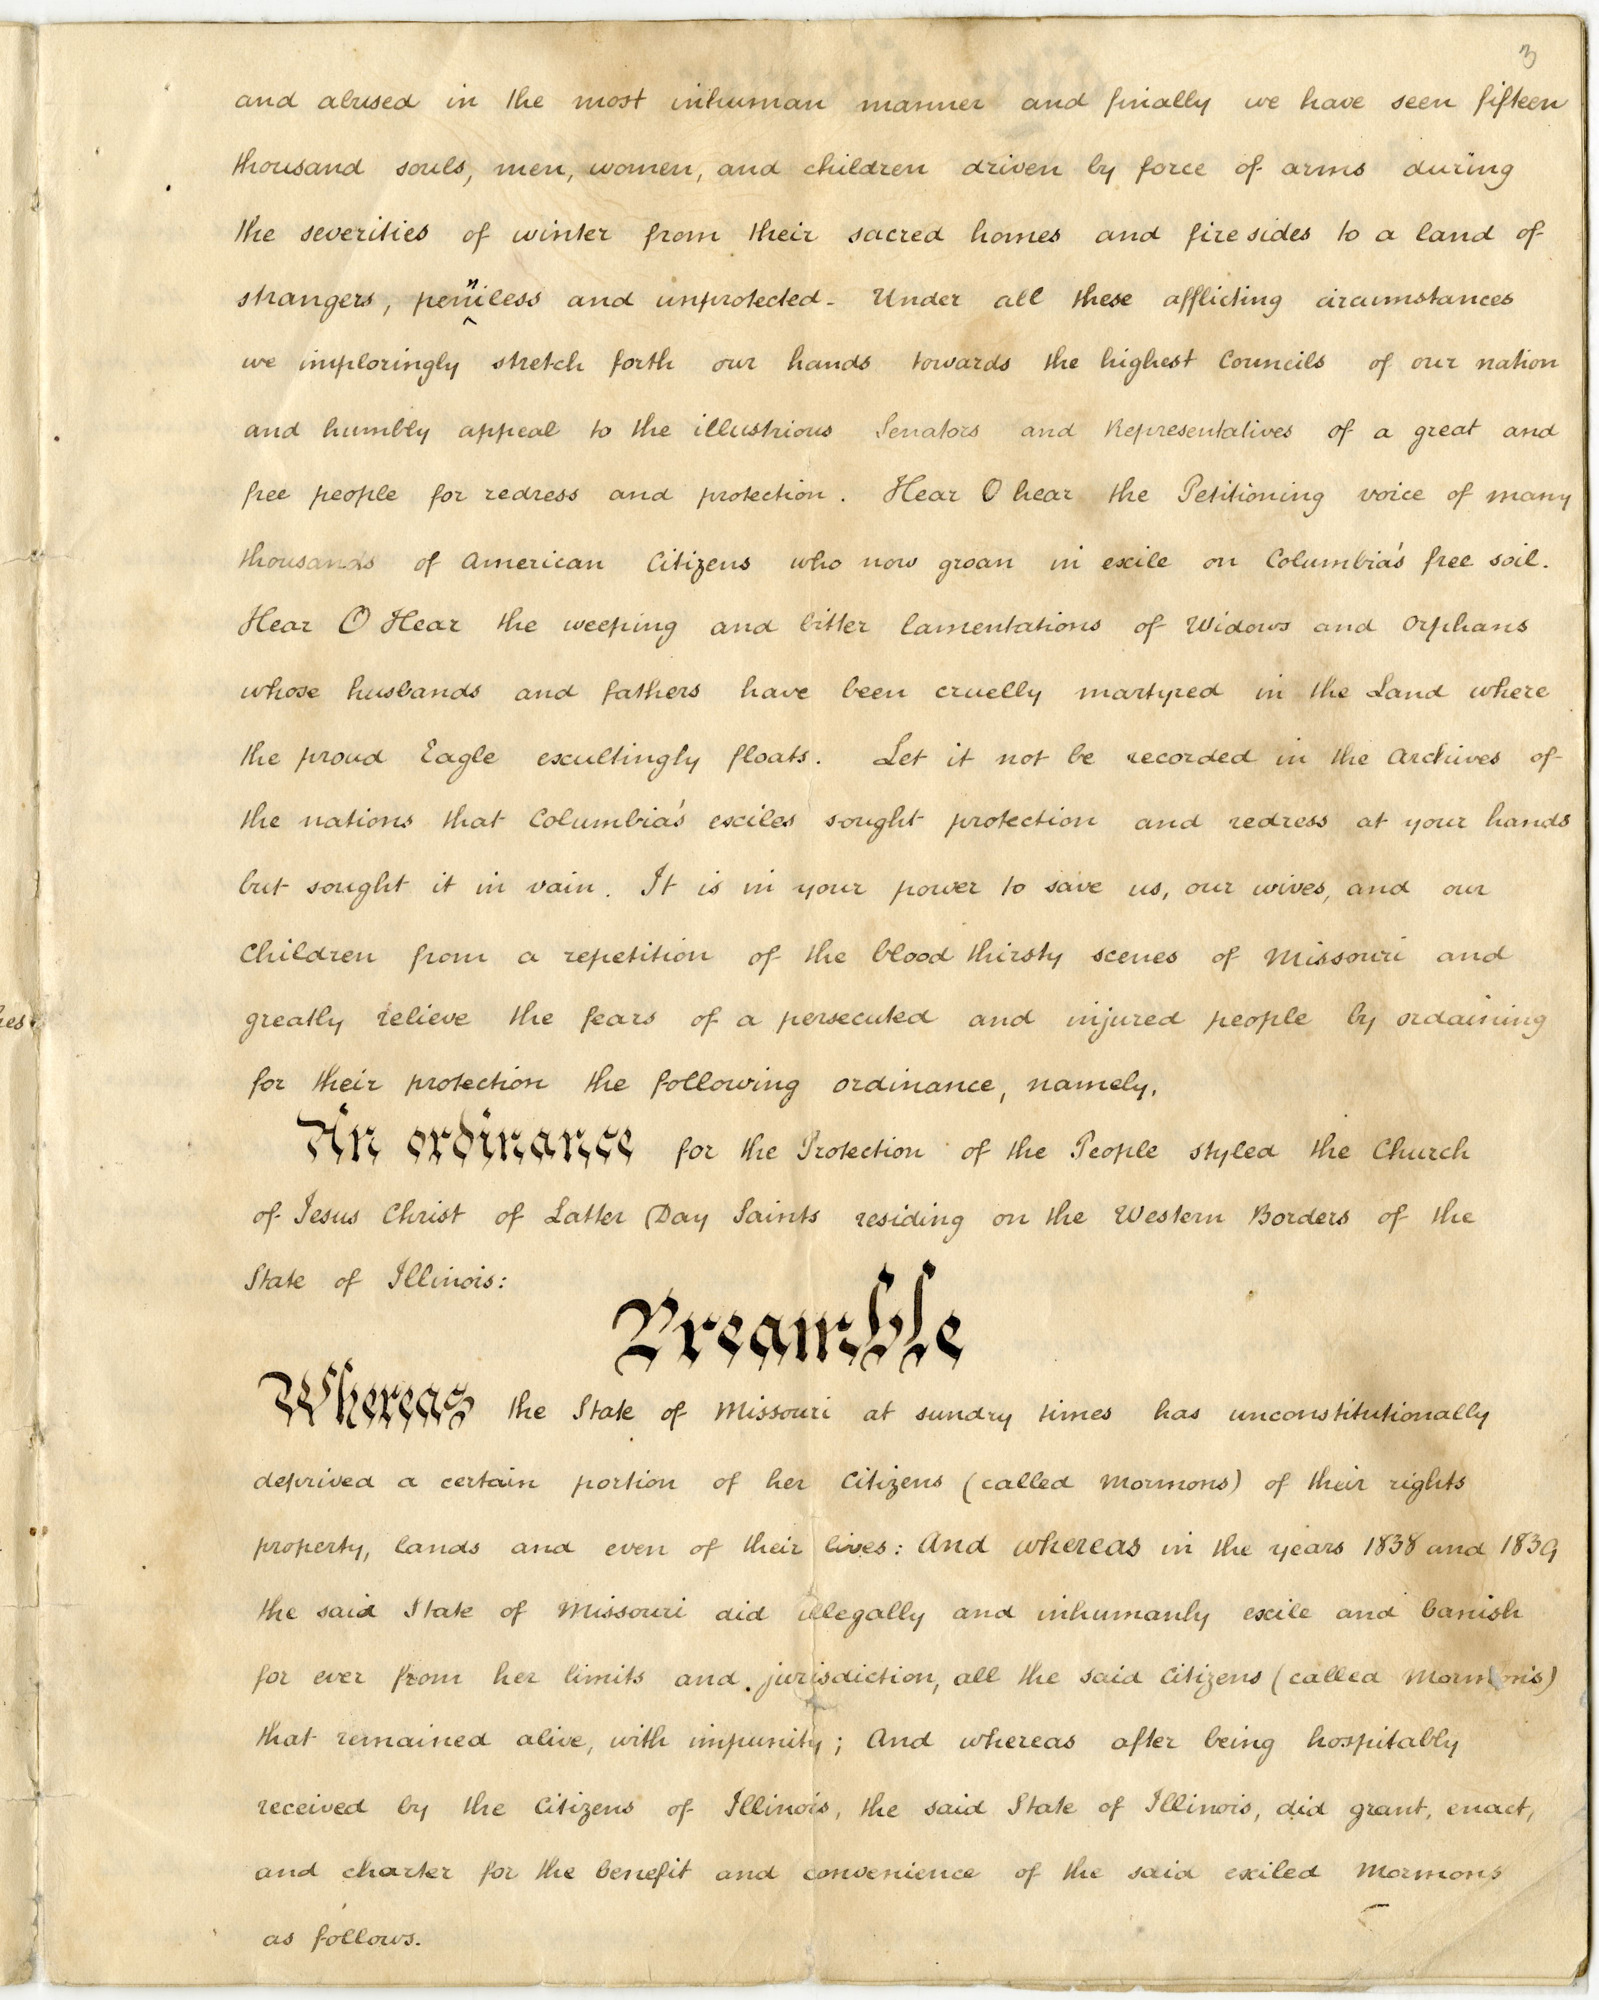 3
and abused in the most inhuman manner and finally we have seen fifteen
thousand souls, men, women, and children driven by force of arms during
the severities of winter from their sacred homes and fire sides to a land of
strangers, penniless and unprotected. Under all these afflicting circumstances
we imploringly stretch forth our hands towards the highest Councils of our nation
and humbly appeal to the illustrious Senators and Representatives of a great and
free people for redress and protection. Hear O hear the Petitioning voice of many
thousands of American Citizens who now groan in exile on Columbia's free soil.
Hear O Hear the weeping and bitter lamentations of Widows and Orphans
whose husbands and fathers have been cruelly martyred in the Land where
the proud Eagle exultingly floats. Let it not be recorded in the Archives of
the nations that Columbia's exciles sought protection and redress at your hands
but sought it in vain. It is in your power to save us, our wives, and our
Children from a repetition of the blood thirsty scenes of Missouri and
greatly relieve the fears of a persecuted and injured people by ordaining
for their protection the following ordinance, namely.
An ordinance for the Protection of the People styled the Church
of Jesus Christ of Latter Day Saints residing on the Western Borders of the
State of Illinois:
Preamble
Whereas the State of Missouri at sundry times has unconstitutionally
deprived a certain portion of her Citizens (called Mormons) of their rights
property, lands and even of their lives: And whereas in the years 1838 and 1839
the said State of Missouri did illegally and inhumanly excile and banish
for ever from her limits and jurisdiction, all the said Citizens (called Mormons)
that remained alive, with impunity; And whereas after being hospitably
received by the Citizens of Illinois, the said State of Illinois, did grant, enact,
and charter for the benefit and convenience of the said exiled Mormons
as follows.